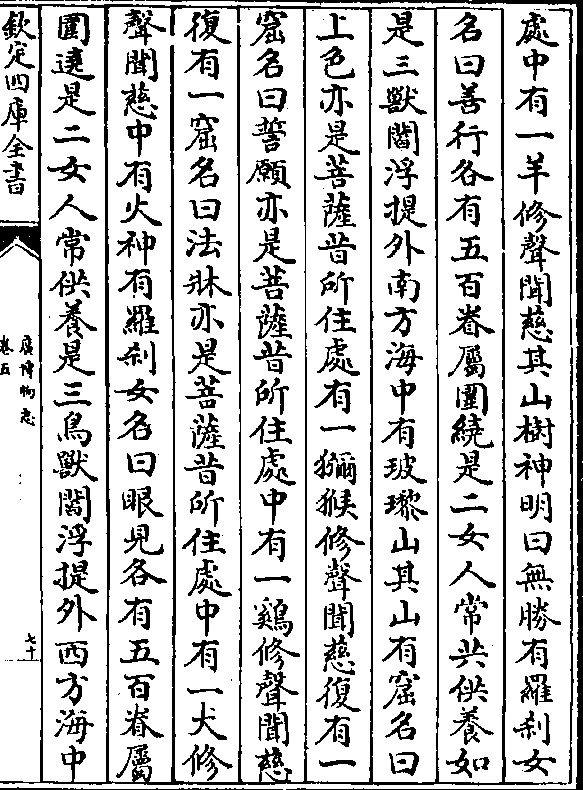 處中有一羊修聲聞慈其山樹神明曰無勝有羅刹女
名曰善行各有五百眷屬圍繞是二女人常共供養如
是三獸閻浮提外南方海中有玻瓈山其山有窟名曰
上色亦是菩薩昔所住處有一獼猴修聲聞慈復有一
窟名曰誓願亦是菩薩昔所住處中有一鷄修聲聞慈
復有一窟名曰法牀亦是菩薩昔所住處中有一犬修
聲聞慈中有火神有羅刹女名曰眼見各有五百眷屬
圍遶是二女人常供養是三鳥獸閻浮提外西方海中
欽定四庫全書
廣博物志
卷五
七十